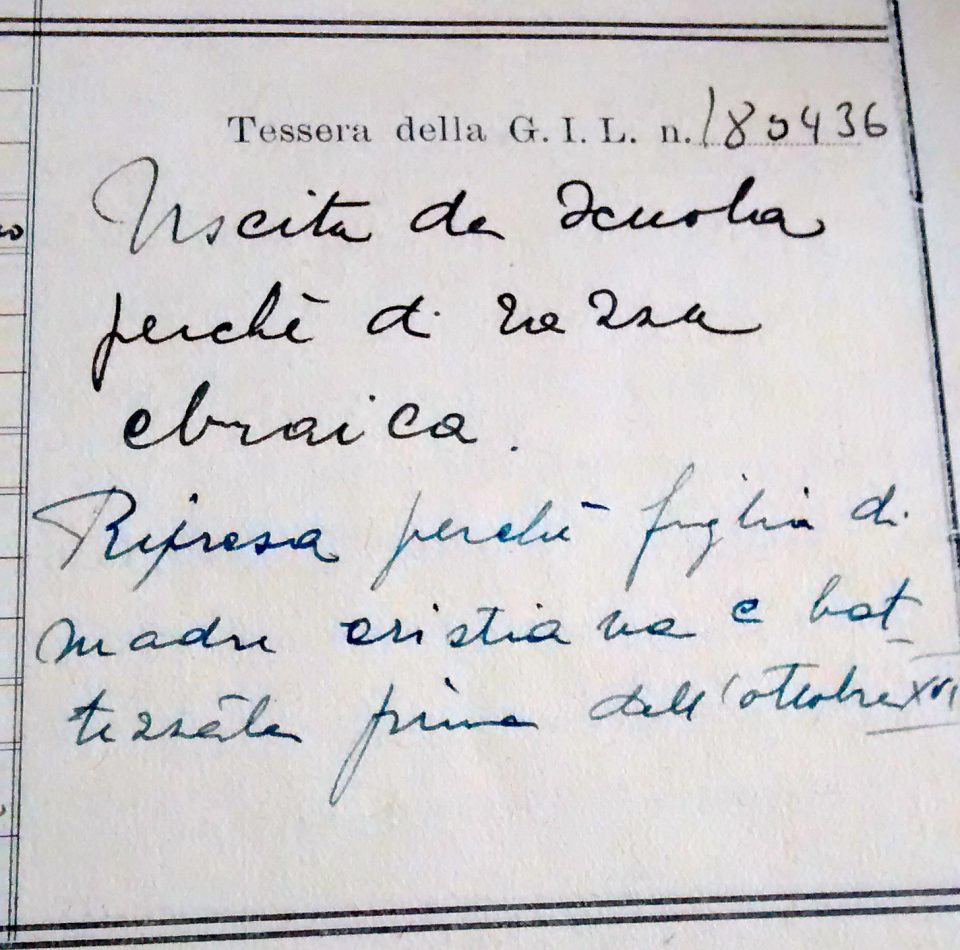 Tessera della G. I. L. n. 180436
Uscita da Scuola
perchè di razza
ebraica.
Ripresa perchè figlia di
madre cristiana e bat
tezzata prima dell'ottobre XVI